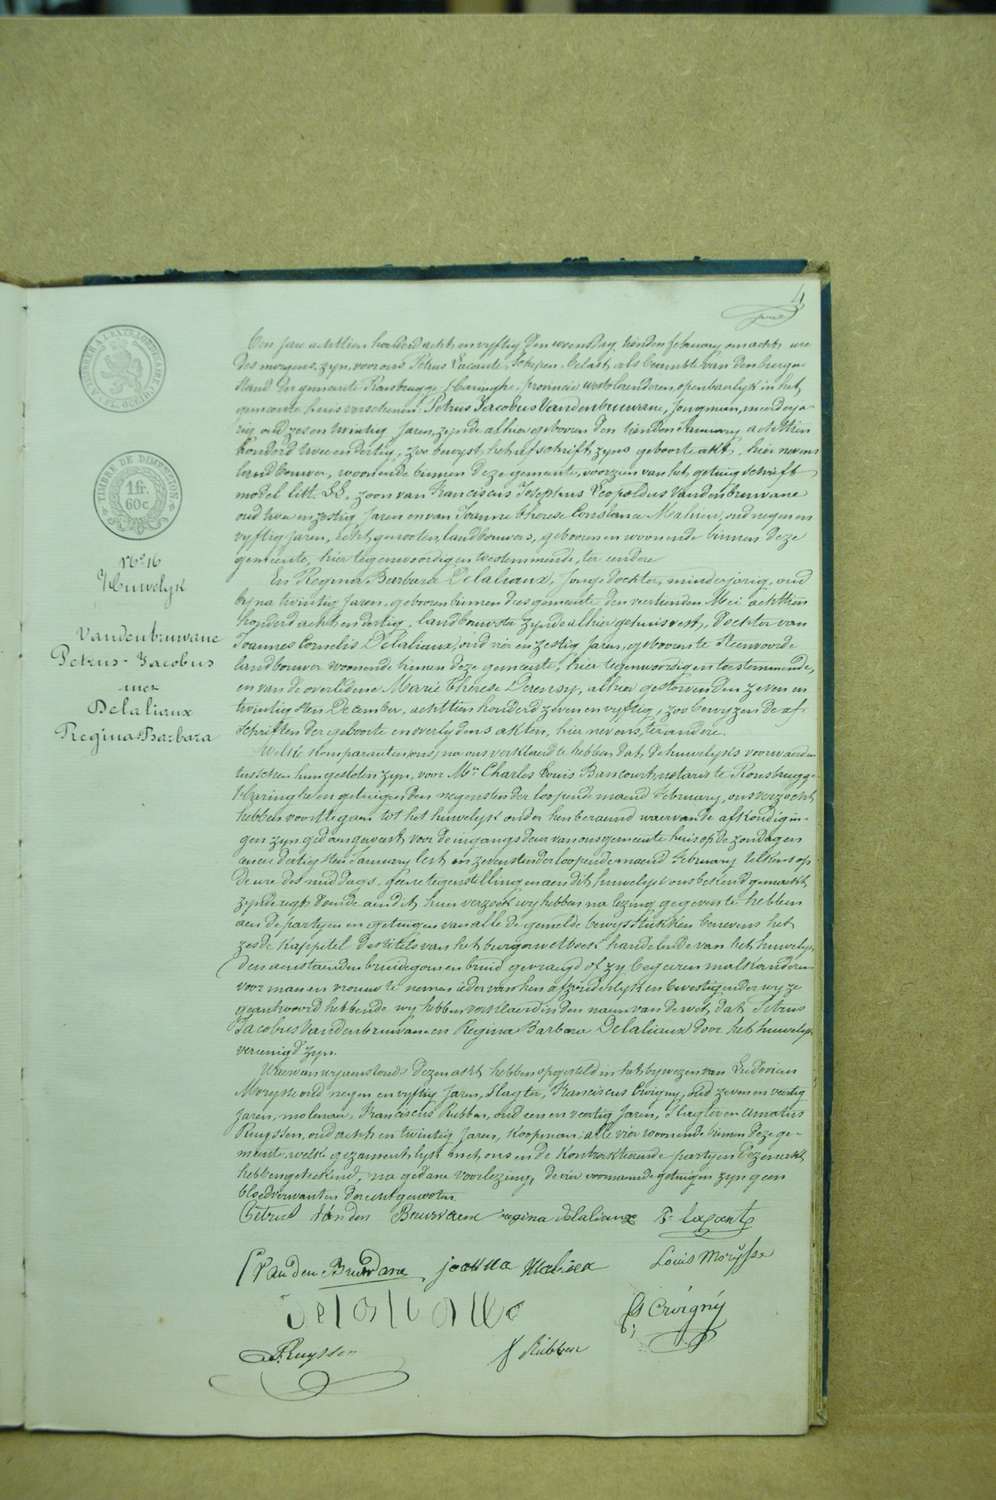 4
TIMBRE DE DIMENSION
1 fr.
60 c
No 16
Huwelyk
Vandenbruwane
Petrus-Jacobus
met
Delaliaux
Regina Barbara
Een jaer achttien honderd acht en vyftig den twendsig sten february om acht ure
des morgens, zyn voor ons Petrus Lacante, schepen, belast als beambte van den burger-
stand der gemeente Rousbrugge-Haringhe, provincie westvlaenderen, openbaerlyk in het
gemeente huis verschenen Petrus Jacobus Vandenbruwane, jongman, meerderja-
rig oud zes en twintig jaren, zynde alhier geboren den tienden January achttien
honderd twee en dertig, zoo bewyst het afschrift zyns geboorte akt, hier nevens
landbouwer, woonende binnen deze gemeente, voorzien van het getuigschrift
model litt. zoon van Franciscus Josephus Leopoldus Vandenbruwane
oud twee en zestig jaren en van Joanna Therese Constance Mahieu, oud negen en
vyftig jaren, echtgenooten, landbouwers, geboren en woonende binnen deze
gemeente, hier tegenwoordig en toestemmende, ter eendere
En Regina Barbara Delaliaux, jonge dochter, minderjarig, oud
byna twintig jaren, geboren binnen dees gemeente den veertienden Mei achttien
honderd acht en dertig, landbouwster zynde alhier gehuisvest, dochter van
Joannes Cornelis Delaliaux, oud vier en zestig jaren, geboren te Steenvoorde
landbouwer woonende binnen deze gemeente, hier tegenwoordig en toestemmende,
en van de overledene Marie Thérèse Derensy, alhier gestorven den zeven en
twintigsten December, achttien honderd zeven en vyftig, zoo bewyzen de af
schriften der geboorte en overlydens akten, hier nevens, ter andere.
Welke komparanten ons, na ons verklaerd te hebben dat de huwelyks voorwaerden
tusschen hun gesloten zyn, voor Mr Charles Louis Bancourt notaris te Rousbrugge
Haringhe en getuigen den negensten der loopende maend february, ons verzocht
hebben voorttegaen tot het huwelyk onder hen beraemd waervan de afkondigin-
gen zyn gedaen geweest voor de ingangsdeur van ons gemeente huis op de zondagen
een en dertigsten January lest en zevensten der loopende maend february telkens op
de ure des middags. geene tegenstellingen aen dit huwelyk ons bekend gemaekt
zynde regt doende aen dit hun verzoek wy hebben na lezing gegeven te hebben
aen de partyen en getuigen van alle de gemelde bewysstukken benevens het
zesde kappittel des titels van het burger wetboek handelende van het huwelyk,
den aenstaenden bruidegom en bruid gevraegd of zy begeeren malkanderen
voor man en vrouw te nemen ider van hen afzonderlyk en bevestigender wyze
geantwoord hebbende wy hebben verklaerd in den naem van de wet, dat Petrus
Jacobus Vandenbruwane en Regina Barbara Delaliaux door het huwelyk
vereenigd zyn.
Waer van wy aenstonds dezen akt hebben opgesteld in het bywezen van Ludovicus
Morysse oud negen en vyftig jaren, slagter, Franciscus Crvigny, oud zeven en veertig
jaren, molenaer, Franciscus Rubben, oud een en veertig jaren, slagter en Amatus
Ruyssen, oud acht en twintig jaren, koopman, alle vier woonende binnen deze ge-
meente, welke gezamentlyk met ons en de kontrakteerende partyen dezen akt
hebben geteekend, na gedane voorlezing, de vier voornoemde getuigen zyn geen
bloedverwanten der echtgenooten
Petrus Vanden Bruwaene regina delaliaux P. Lacante
F Vanden Bruwane joanna Mahieu Louis Morysse
Delaliaux F Crvigny
A. Ruyssen F Rubben